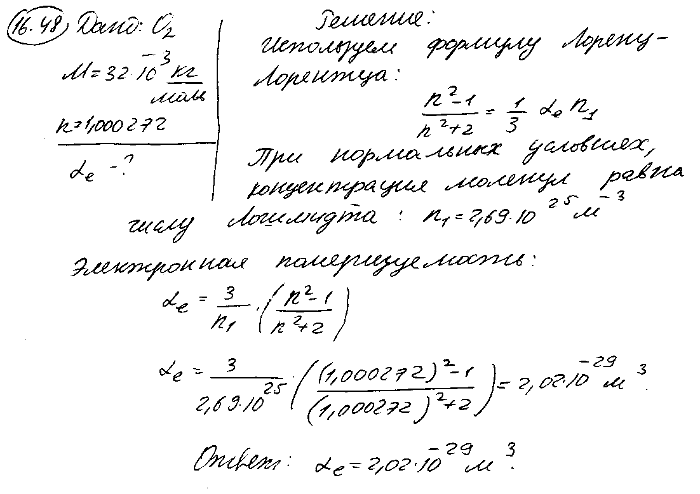 16.48 Дано: O₂
M = 32·10⁻³ кг/моль
n = 1,000272
αₑ - ?
Решение:
Используем формулу Лоренц-
Лорентца:
(n²-1)/(n²+2) = 1/3 αₑ n₁
При нормальных условиях,
концентрация молекул равна
числу Лошмидта: n₁ = 2,69·10²⁵ м⁻³
Электронная поляризуемость:
αₑ = 3/n₁ · ((n²-1)/(n²+2))
αₑ = 3/(2,69·10²⁵) · (((1,000272)²-1)/((1,000272)²+2)) = 2,02·10⁻²⁹ м³.
Ответ: αₑ = 2,02·10⁻²⁹ м³.